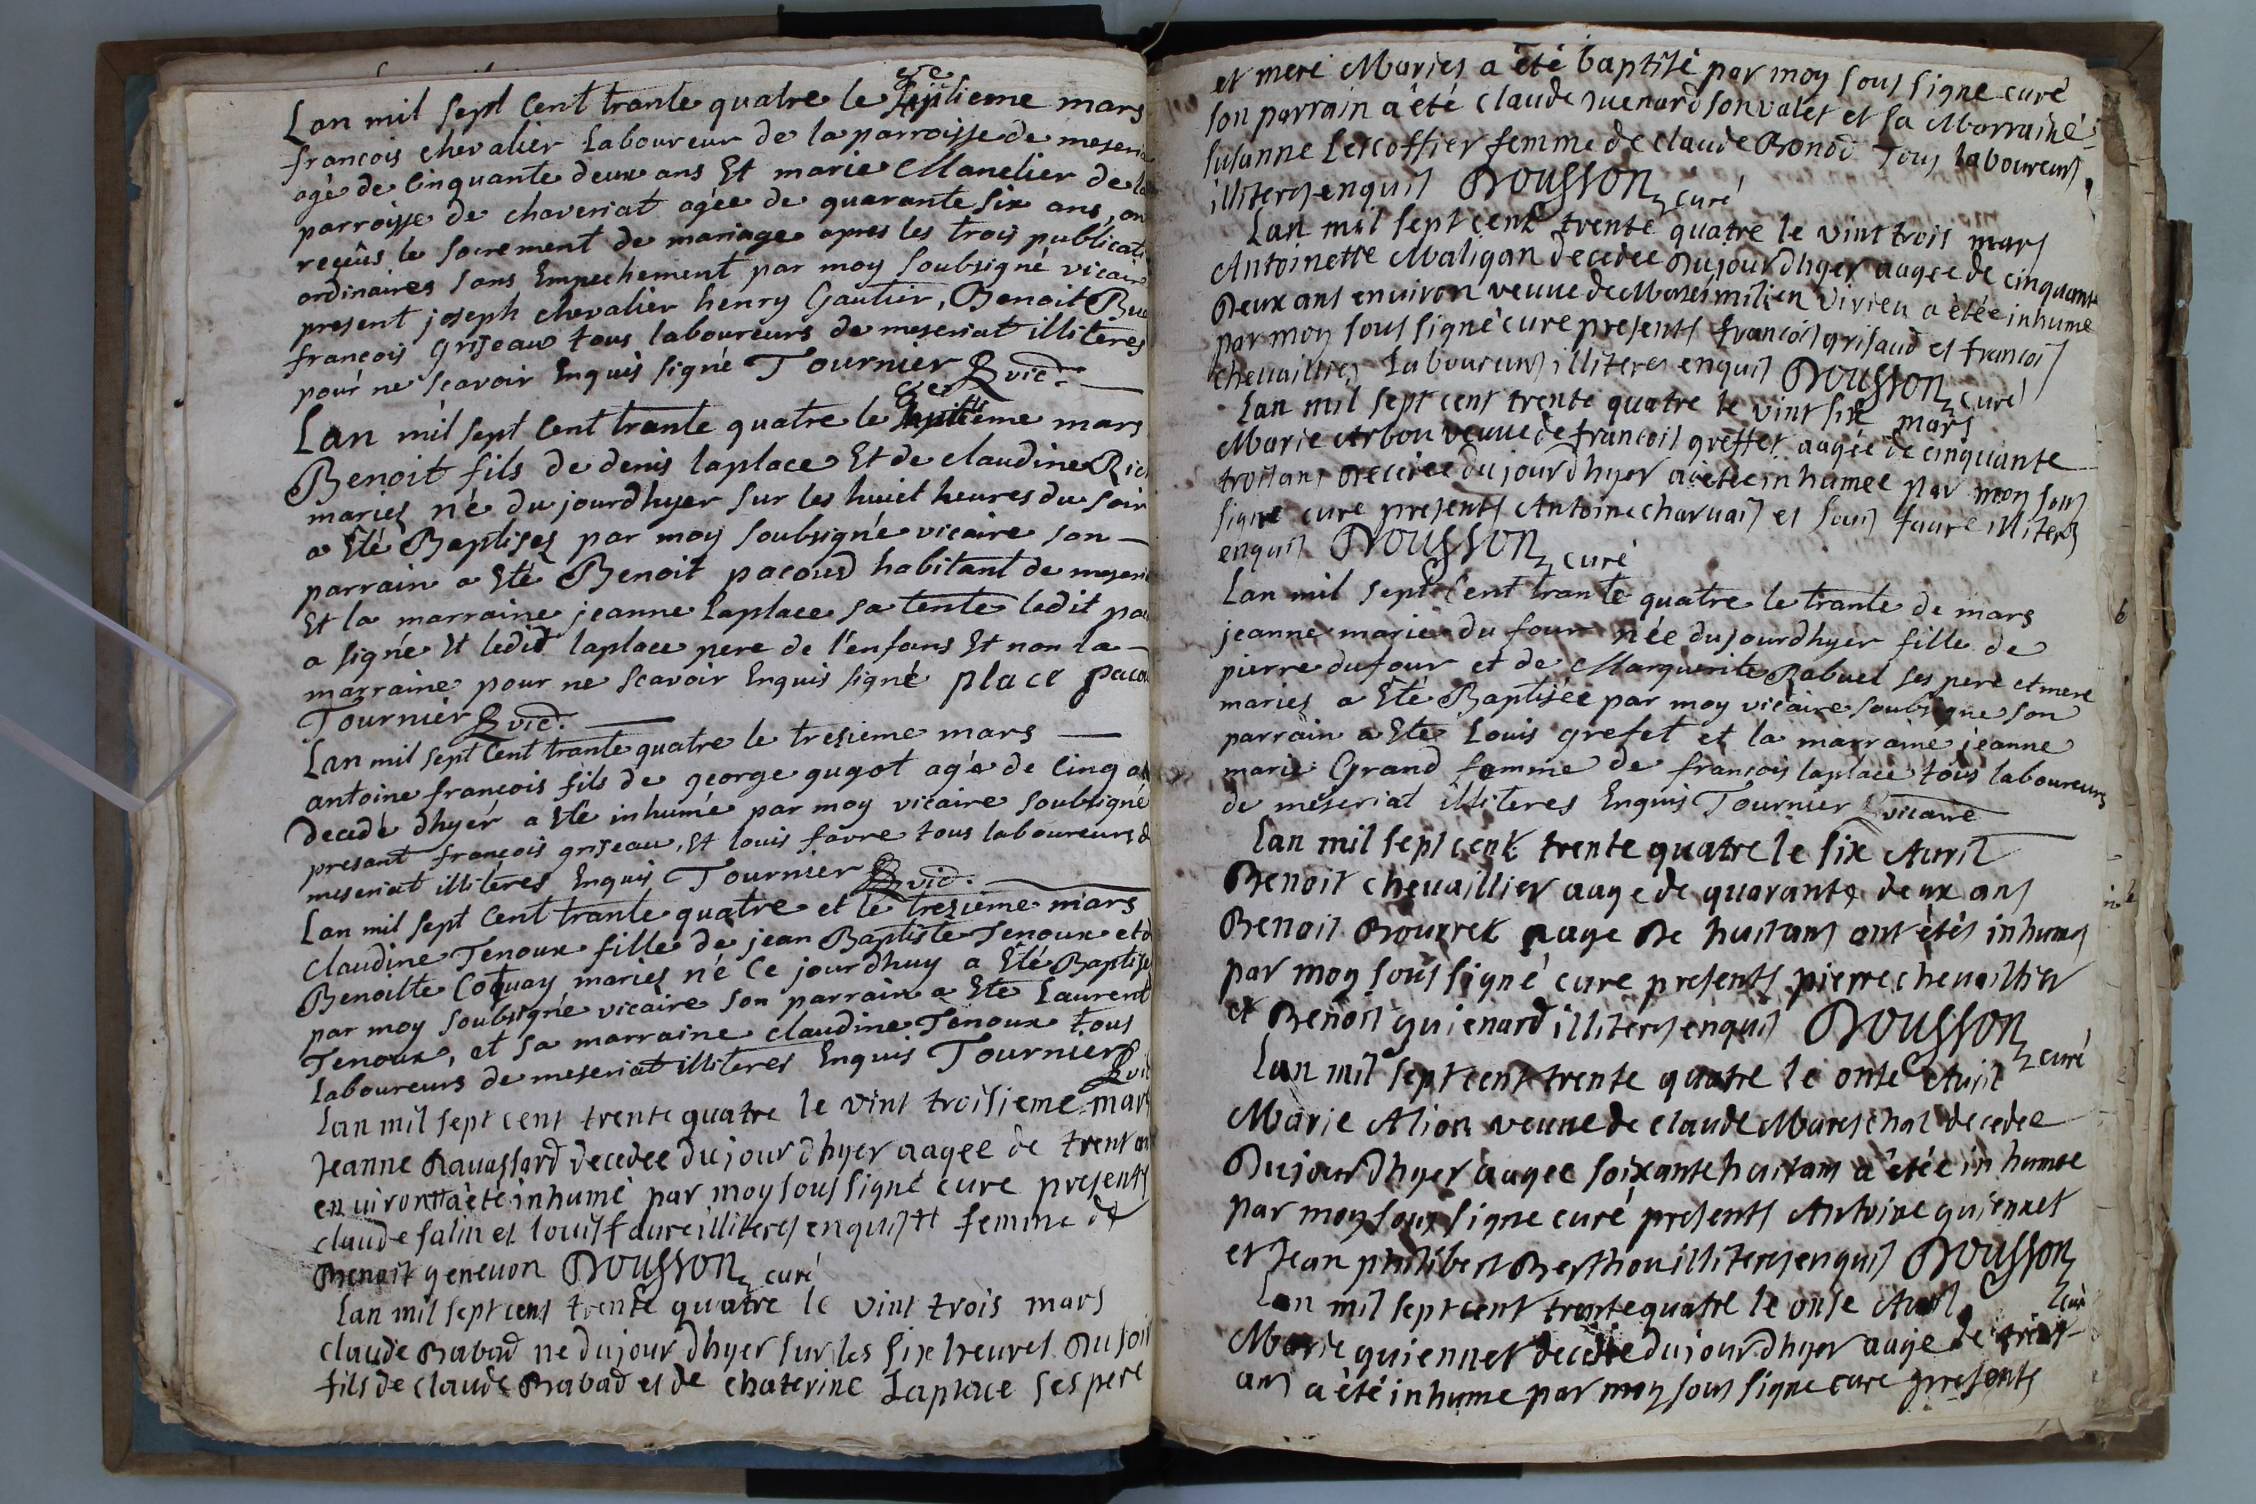 Lan mil sept Cent trante quatre le septieme mars
francois chevalier Laboureur de la parroisse de meseria
agé de Cinquante deux ans Et marie Manelier de la
parroisse de chaveriat agée de quarante six ans, on
reçeûs le sacrement de mariage apres les trois publicati
ordinaires sans Empechement par moy soubsigné vicaire
present joseph chevalier henry Gautier, Benoit Bu
françois griseau tous laboureurs de meseriat illiteres
pour ne scavoir Enquis signé Tournier vic.
Lan mil sept Cent trante quatre le septieme mars
Benoit fils de denis laplace Et de claudine Ric
mariez né du jourdhyer sur les huict heures du soir
a Eté Baptisez par moy soubsigné vicaire son
parrain a Eté Benoit pacoud habitant de meseri
Et la marraine jeanne laplace sa tente ledit pa
a signé Et ledit laplace pere de l'enfans Et non la
marraine pour ne scavoir Enquis signé place paco
Tournier vic.
Lan mil sept Cent trante quatre le tresieme mars
antoine françois fils de george gugot agé de Cinq a
decedé dhyér a Eté inhumé par moy vicaire soubsigné
presant françois griseau, Et louis favre tous laboureurs d
meseriat illitéres Enquis Tournier vic.
Lan mil sept Cent trante quatre et le tresieme mars
claudine Tenoux fille de jean Baptiste Tenoux et d
Benoitte Coquay mariez né Ce jourdhuy a Eté Baptise
par moy soubsigné vicaire son parrain a Eté Laurent
Tenoux, et sa marraine claudine Tenoux tous
laboureurs de meseriat illiteres Enquis Tournier
vic
Lan mil sept cent trente quatre le vint troisieme mars
Jeanne Ravassard decedee du jour dhyer aagee de trent an
environ a été inhumé par moy sous signé cure presents
claude salin et louis faure illiteres enquis femme de
Benoit genevon Dousson curé
Lan mil sept cent trente quatre le vint trois mars
claude Rabad ne du jour dhyer sur les six heures Du soir
fils de claude Rabad et de chaterine Laplace ses pere
et mere Maries a été baptisé par moy sous signe curé
son parrain a été claude guenard son valet et sa Marraine
susanne Lescoffier femme de claude Bonod Tous laboureurs
illiteres enquis Dousson curé
Lan mil sept cent trente quatre le vint trois mars
Antoinette Maligan decedee Du jour dhyer aagee de cinquante
Deux ans environ veuve de Maximilien vivien a étée inhume
par moy sous signé cure presents francois grisaud et francois
chevaillier Laboureurs illiteres enquis Dousson curé
Lan mil sept cent trente quatre le vint six mars
Marie Arbon veuve de francois greffet aagée de cinquante
trois ans Decedee du jour dhyer a étée inhumee par moy sous
signe cure presents Antoine charvais et louis faure illiters
enquis Dousson curé
Lan mil sept Cent trante quatre le trante de mars
jeanne marie du four née dujourdhyer fille de
pierre dufour et de Marguerite Rabuel ses pere et mere
maries a Eté Baptisée par moy vicaire soubsigne son
parrain a Eté Louis grefet et la marraine jeanne
marie Grand femme de françois laplace tous laboureurs
de meseriat illiteres Enquis Tournier vicaire
Lan mil sept cent trente quatre le six Avril
Benoit chevaillier aage de quarante deux ans
Benoit Bourret aage De huit ans ont étés inhumes
par moy sous signé cure presents pierre chevaillier
et Benoit guienard illiteres enquis Dousson
curé
Lan mil sept cent trente quatre le onse Avril
Marie Alion veuve de claude Mareschal decedee
Du jour Dhyer aagee soixante huit ans a étée inhumee
par moy sous signe curé presents Antoine guiennet
et Jean philibert Berthou illiteres enquis Dousson
curé
Lan mil sept cent trente quatre le onse Avril
Marie guiennet decedee du jour dhyer aage de trent
ans a été inhume par moy sous signe cure presents